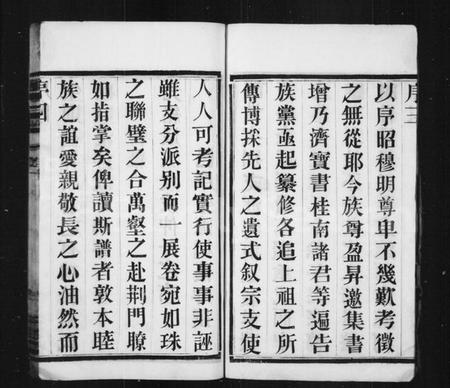 序三
以序昭穆明尊卑不幾歎考徵
之無從耶今族尊盈昇邀集書
增乃濟寶書桂南諸君等遍告
族黨亟起纂修各追上祖之所
傳博採先人之遺式叙宗支使
人人可考記實行使事事非誣
雖支分派别而一展卷宛如珠
之聯璧之合萬壑之赴荆門瞭
如指掌矣俾讀斯譜者敦本睦
族之誼愛親敬長之心油然而
序四